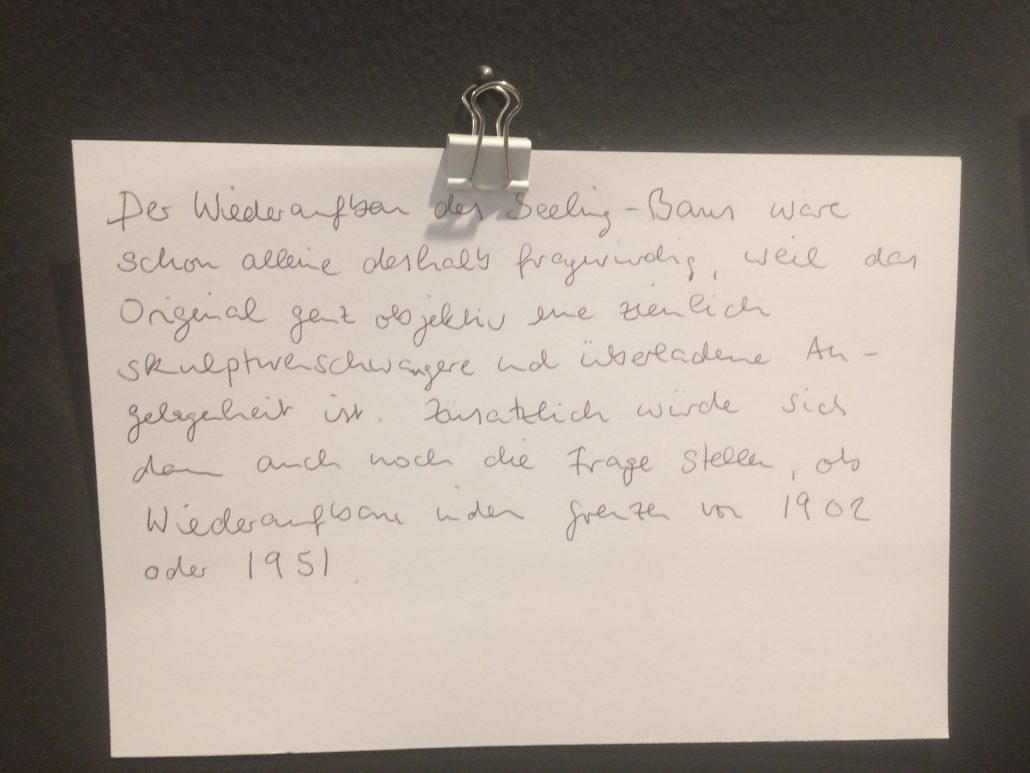 Der Wiederaufbau des Seeling-Baus wäre
schon alleine deshalb fragwürdig, weil das
Original ganz objektiv eine ziemlich
skulpturenschwangere und überladene An-
gelegenheit ist. Zusätzlich würde sich
dann auch noch die Frage stellen, ob
Wiederaufbau in den Grenzen von 1902
oder 1951.